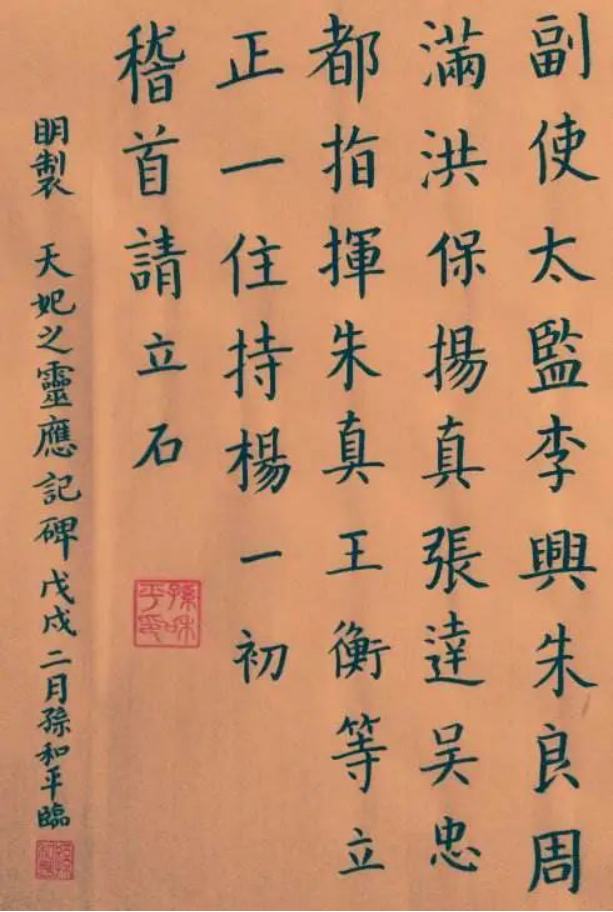 副使太監李興朱良周
滿洪保揚真張達吴忠
都指揮朱真王衡等立
正一住持楊一初
稽首請立石
明製 天妃之靈應記碑戊戌二月孫和平臨
孫和平印